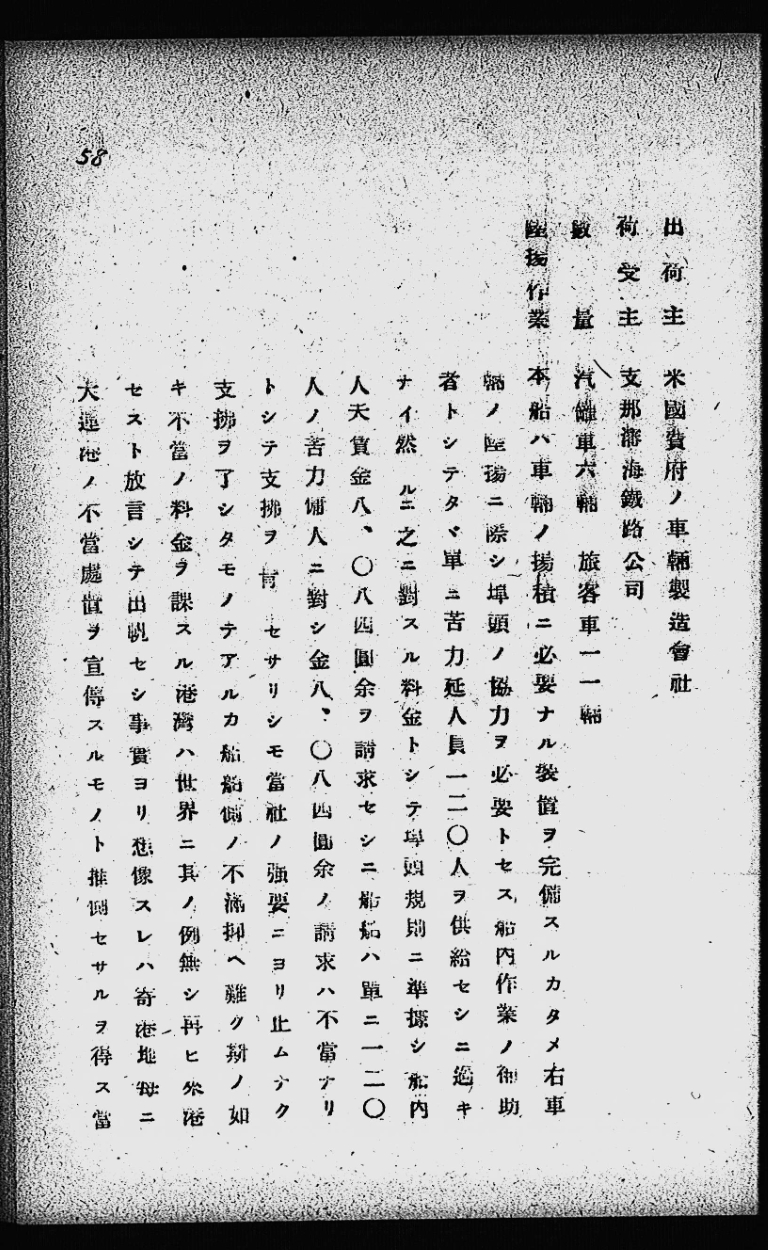 出荷主 米國貨府ノ車輛製造會社
荷受主 支那瀋海鐵路公司
數量 汽罐車六輛 旅客車一一輛
陸揚作業 本船ハ車輛ノ揚積ニ必要ナル裝置ヲ完備スルカタメ右車
輛ノ陸揚ニ際シ埠頭ノ協力ヲ必要トセス船內作業ノ補助
者トシテタヾ單ニ苦力延人員一二〇人ヲ供給セシニ過キ
ナイ然ルニ之ニ對スル料金トシテ埠頭規則ニ準據シ船內
人夫賃金八、〇八四圓余ヲ請求セシニ船ハ單ニ一二〇
人ノ苦力傭人ニ對シ金八、〇八四圓余ノ請求ハ不當ナリ
トシテ支拂ヲ肯セサリシモ當社ノ強要ニヨリ止ムナク
支拂ヲ了シタモノテアルカ船舶側ノ不滿抑ヘ難ク斯ノ如
キ不當ノ料金ヲ課スル港灣ハ世界ニ其ノ例無シ再ヒ來港
セスト放言シテ出帆セシ事實ヨリ想像スレハ寄港地每ニ
大連港ノ不當處置ヲ宣傳スルモノト推測セサルヲ得ス當
58